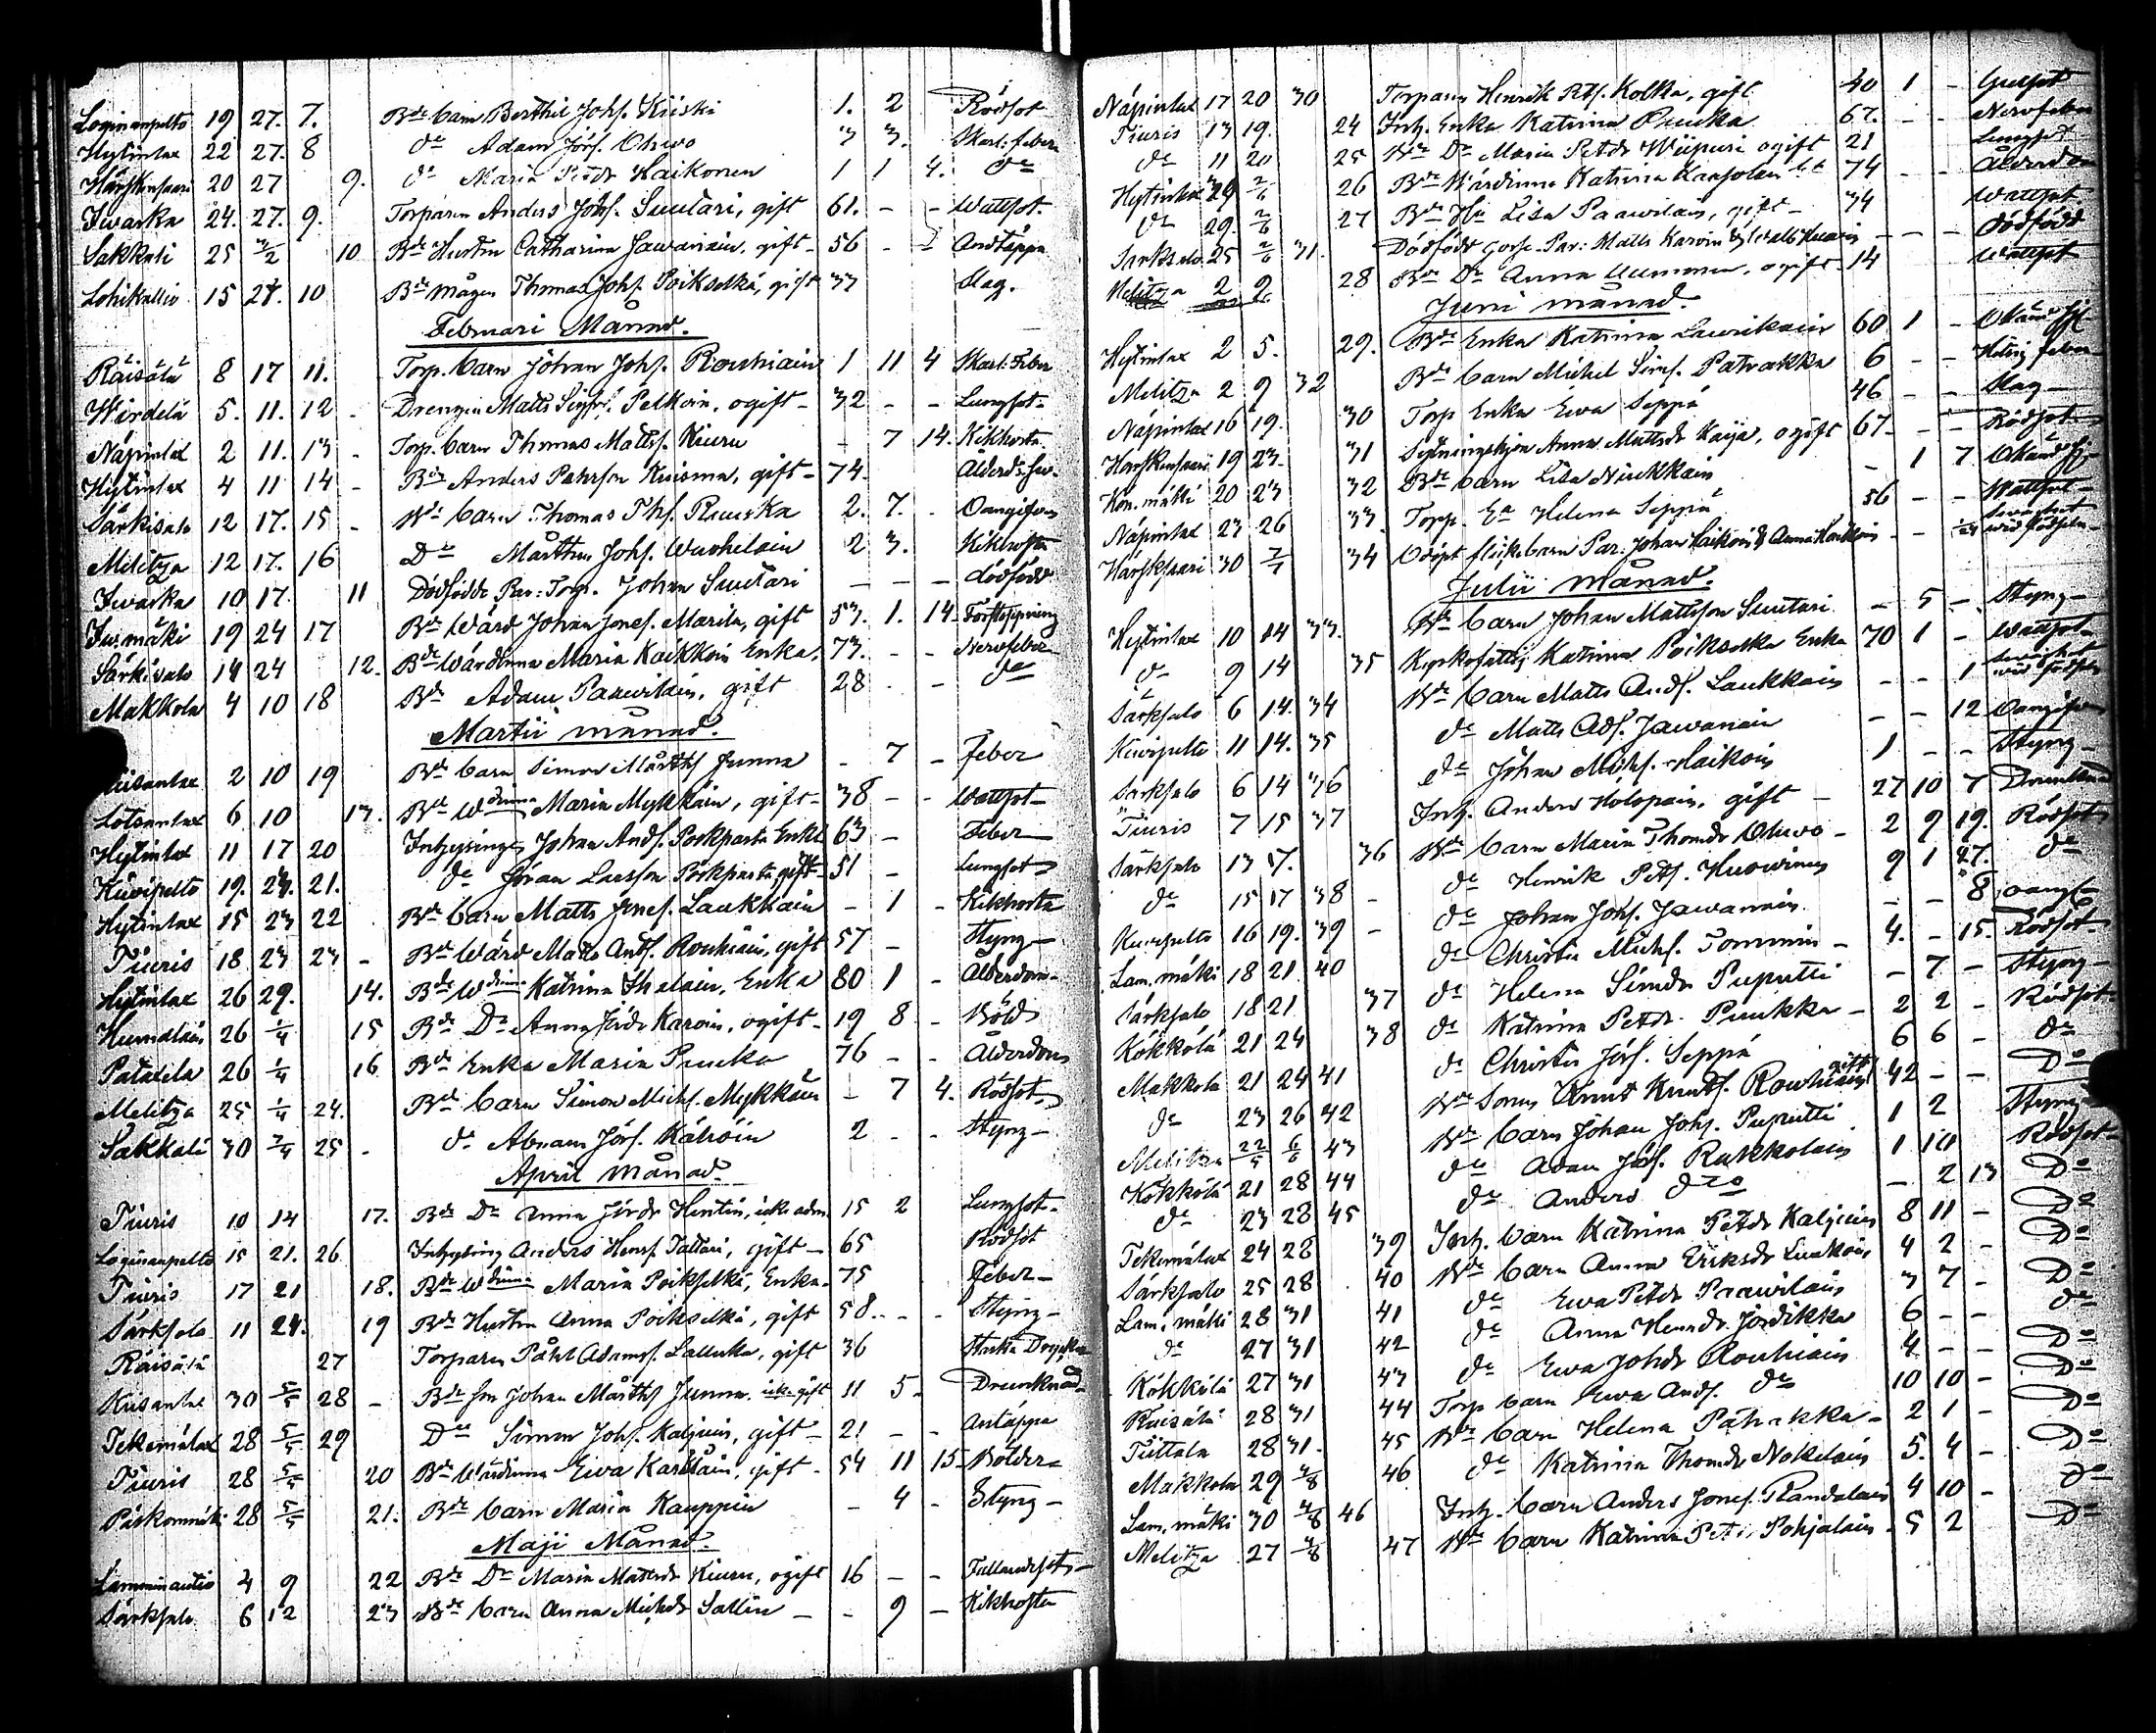 Loginanpelto 19 27. 7. Bde barn Berthil Johs. Kiiski 1. 2 Rödsot
Hytinlax 22 27. 8 de Adam Jörs. Ohwo 3 3. Skarl: feber
Härskensaari 20 27 9. de Maria Petdr Kaikonen 1 1 4. de
Iwaska 24. 27. 9. Torparen Anders Johs. Suutari, gift 61. - - Wattsot.
Sakkali 25 3/2 10 Bde Hustru Catharina Jawanain, gift - 56 - - Andtäppa
Lohikallio 15 27. 10 Bde mågen Thomas Johs. Poikselkä, gift 37 Slag.
Februari Månad.
Räisälä 8 17 11. Torp. barn Johan Johs. Rouhiain 1 11 4 Skarl: Feber
Wirdelä 5. 11. 12 - Drengen Matts Sigfr. Pelkoin, ogift - 32 - - Lungsot.
Näpinlax 2 11. 13 - Torp. barn Thomas Mattss. Kiuru - 7 14. Kikhosta
Hytinlax 4 11 14 - Bdn Anders Pährson Kuisma, gift - 74.
Särkisalo 12 17. 15 - Bde barn Thomas Ths. Ruuska 2. 7. - Oangifven
Melitza 12 17. 16 De Mårthen Johs. Wauhelain 2 3. Kikhosta
Iwaska 10 17. 11 Dödfödde Par: Torp. Johan Suutari - - - dödfödd
Iw. mäki 19 24 17 Bde Wärd Johan Jones. Marila, gift 53. 1. 14.
Särkisalo 14 24 12. Bde Wärdinna Maria Kaikkoin Enka. 73. - - Nervfeber
Makkola 4 10 18 Bde Adam Paawilain, gift 28 - - de
Martii månad.
2 10 19 Bde barn Simon Mårths Junna - 7 - Feber
Lötsänlax 6. 10 13. Bde Wdinna Maria Mykkäin, gift - 38 - - Wattsot -
Hytinlax 11 17 20 Inhysing Johan Ands. Porkpasta Enkl 63 - Feber
Kiwipelto 19. 23. 21. de Jöran Larsson Porkpasta gift 51 - Lungsot
Hytinlax 15 23 22 Bde barn Matts Jones. Laukkain - 1 - Kikhosta
Tiuris 18 23 23 - Bde Wärd Matts Ants. Rouhiain, gift 57 - Styng -
Hytinlax 26 29. 14. Bde Wdinna Katrina Ihalain, Enka 80 1 - Ålderdom.
26 1/4 15 Bde De Anna Karoin, ogift - 19 8 - Böld
26 1/4 16 Bde Enka Maria Puukka 76 - - Ålderdom
Melitza 25 1/4 24. Bde barn Simon Michs. Mykkäin - 7 4. Rödsot
Sakkali 30 2/4 25 - de Abram Jörs. Kähöin 2 - - Styng -
April månad.
Tiuris 10 14 17. Bde De Anna Jördr Hintin, icke adm. 15 2 Lungsot.
Loginanpelto 15 21. 26 Inhysing Anders Henrs. Tattari, gift - 65 Rödsot
Tiuris 17 21 18. Bde Wdinna Maria Poikselkä, Enka. 75 Feber -
Särksalo 11 24. 19 Bde Hustru Anna Poikselkä, gift 58. - - Styng -
Räisälä 27 Torparen Påhl Adams. Lalluka, gift 36
Kusanlax 30 5/5 28 - Bde Son Johan Mårths Junna. icke gift 11 5. Drunknad
Tekemälax 28 5/5 29 De Simon Johs. Kaljuin, gift - 21 - - Antäppa
Tiuris 28 5/5 20 Bde Wärdinna Ewa Karhlain, gift - 54 11 15 Bölder
28 5/5 21. Bde barn Maria Kauppin - 4 - Styng -
Maji Månad.
Lamminautio 4 9 22 Bde De Maria Mattsdr Kiuru, ogift 16 - - Fallandesot -
Särksalo 6 12 23 Bde barn Anna Michsdr Sallin - - 9 - Kikhosta
Näpinlax 17 20 30 Torparen Henrik Pets. Kolkka, gift 40 1 - Gulsot
Tiuris 13 19. 24 Inh. Enka Katrina Puukka 67. - - Nervfeber
de 11 20 25 Bde De Maria Petdr Wiipuri ogift 21 Lungsot
Hytinlax 29 2/6 26 Bde Wärdinna Katrina 74 - - Ålderdom
de 29. 2/6 27 Bde Hu Lisa Paawilain, gift - 34 Wattsot
Särksalo 25 2/6 31. Dödfödt gosse. Par: Matts Karoin - - - Dödfödd
Melitza 2 9 28 Bde De Anna, ogift. 14 Wattsot
Juni månad.
Hytinlax 2 5. 29. Bde Enka Katrina Laurikain 60 1 -
Melitza 2 9 32 Bde barn Michel Sims. Patrakka 6 - - feber
Näpinlax 16 19. 30 Torp Enka Ewa Seppä 46 - - Slag -
Härskensaari 19 23. 31 Anna Mattsdr Kaija, ogift 67. - - Rödsot
Kon. mäki 20 23 32 Bde barn Lisa Niukkain - 1 7
Näpinlax 23 26 33. Torp. Ea Helena Seppä 56 - - Wattsot
Härsksaari 30 7/7 34 Odöpt flickebarn Par. Johan Kaikoin & Anna Kaikoin - - 1/24 wid födseln
Julii månad.
Hytinlax 10 14 33. Bde barn Johan Mattsson Suutari - 5 - Styng -
de 9 14 35 Kyrkofattig Katrina Poikselkä Enka 70 1 - Wattsot -
Särksalo 6 14. 34 Bde barn Matts Ands. Laukkain - - 1 wid födseln
Kiwipelto 11 14. 35 de Matts Ads. Jawanain - - 12 Oangifven
Särksalo 6 14 36 de Johan Michs. Kaikoin 1 - - Styng -
Tiuris 7 15 37 Inh. Anders Holopain, gift - 27 10 7 Drunknad
Särksalo 13 17. 36 Bde barn Maria Thomdr Ohwo - 2 9 19. Rödsot
de 15 17 38 - de Henrik Pets. Huowinen 9 1 27. de
Kiwipelto 16 19. 39 - de Johan Johs. Jawanain - - 8 oangif
Lam. mäki 18 21 40 de Christer Michs. Tommin - 4. - 15. Rödsot
Särksalo 18 21 37 de Helena Simdr Puputti - 7 - Styng -
Kökkölä 21 24 38 de Katrina Petdr. Puukka - 2 2 - Rödsot
Makkola 21 24 41 de Christer Jörs. Seppä 6 6 - de
de 23 26 42 Bde Sonen Knut Knuts. Rouhiain gift 42 - - Do
Melitza 22/5 6/6 43 Bde barn Johan Johs. Puputti 1 2 Styng
Kökkölä 21 28 44 de Adam Jörs. Rukkolain 1 10 Rödsot
de 23 28 45 de Anders de o - 2 13 Do
Tekemälax 24 28 39 Inh. barn Katrina Petdr Kaljuin 8 11 - Do
Särksalo 25 28 40 Bde barn Anna Eriksdr Liukoin 4 2 - Do
Lam. mäki 28 31 41 de Ewa Petdr Paawilain 3 7 - Do
de 27 31 42 de Anna Henrdr Jördikka 6 - - de
Kökkölä 27 31 43 de Ewa Johdr Rouhiain 4 - - Do
Räisälä 28 31 44 Torp barn Ewa Ands. de 10 10 - Do
Tiittala 28 31. 45 Bde barn Helena Patrakka - 2 1 - Do
Makkola 29 4/8 46 de Katrina Thomdr Nokelain 5. 4 - Do
Lam. mäki 30 4/8 46 Inh. barn Anders Jones. Pandalain 4 10 - de
Melitza 27 4/8 47 Bde barn Katrina Petdr Pohjalain - 5 2 Do